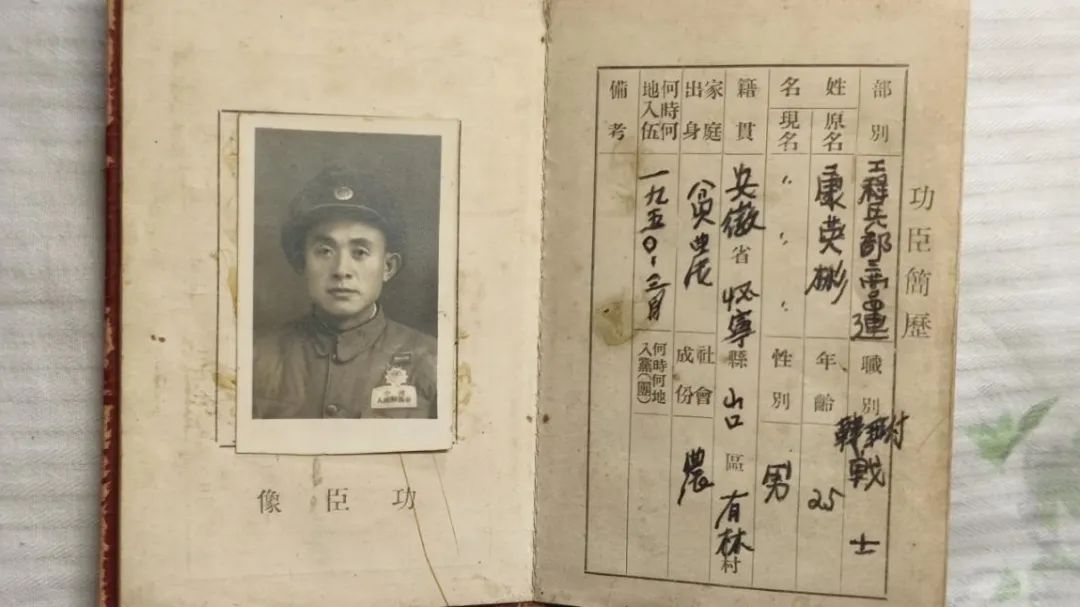 功臣簡歷
部別 工程兵部 連 職別 戰士
姓名 原名 康英彬 年齡 25
現名 〃 〃 〃 性別 男
籍貫 安徽省怀寧縣山口區有林村
家庭出身 貧農 社會成份 農
何時何地入伍 一九五〇.三月 何時何地入黨(團)
備考
功臣像